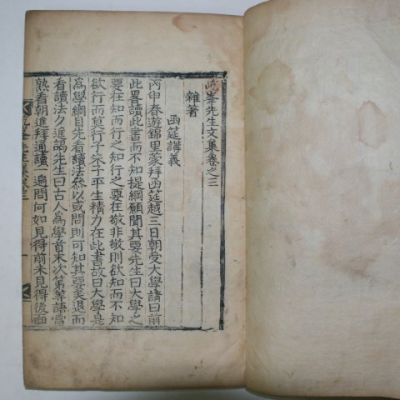 峯先生文集卷之三
雜著
函筵講義
丙申春遊錦里蒙拜函筵越三日朝受大學請曰前
此畧讀此書而不知提綱願聞其要先生曰大學之
要在知行之知行之要在敬非敬則欲知而不知
欲行而不行子朱子平生精力在此書故曰大學是
爲學綱目先看讀法然以或問則可知其要矣退而
看讀法夕進謁先生曰古人爲學首末次第等語當
熟看朝進拜通讀一遍問何如見得前未見得後面